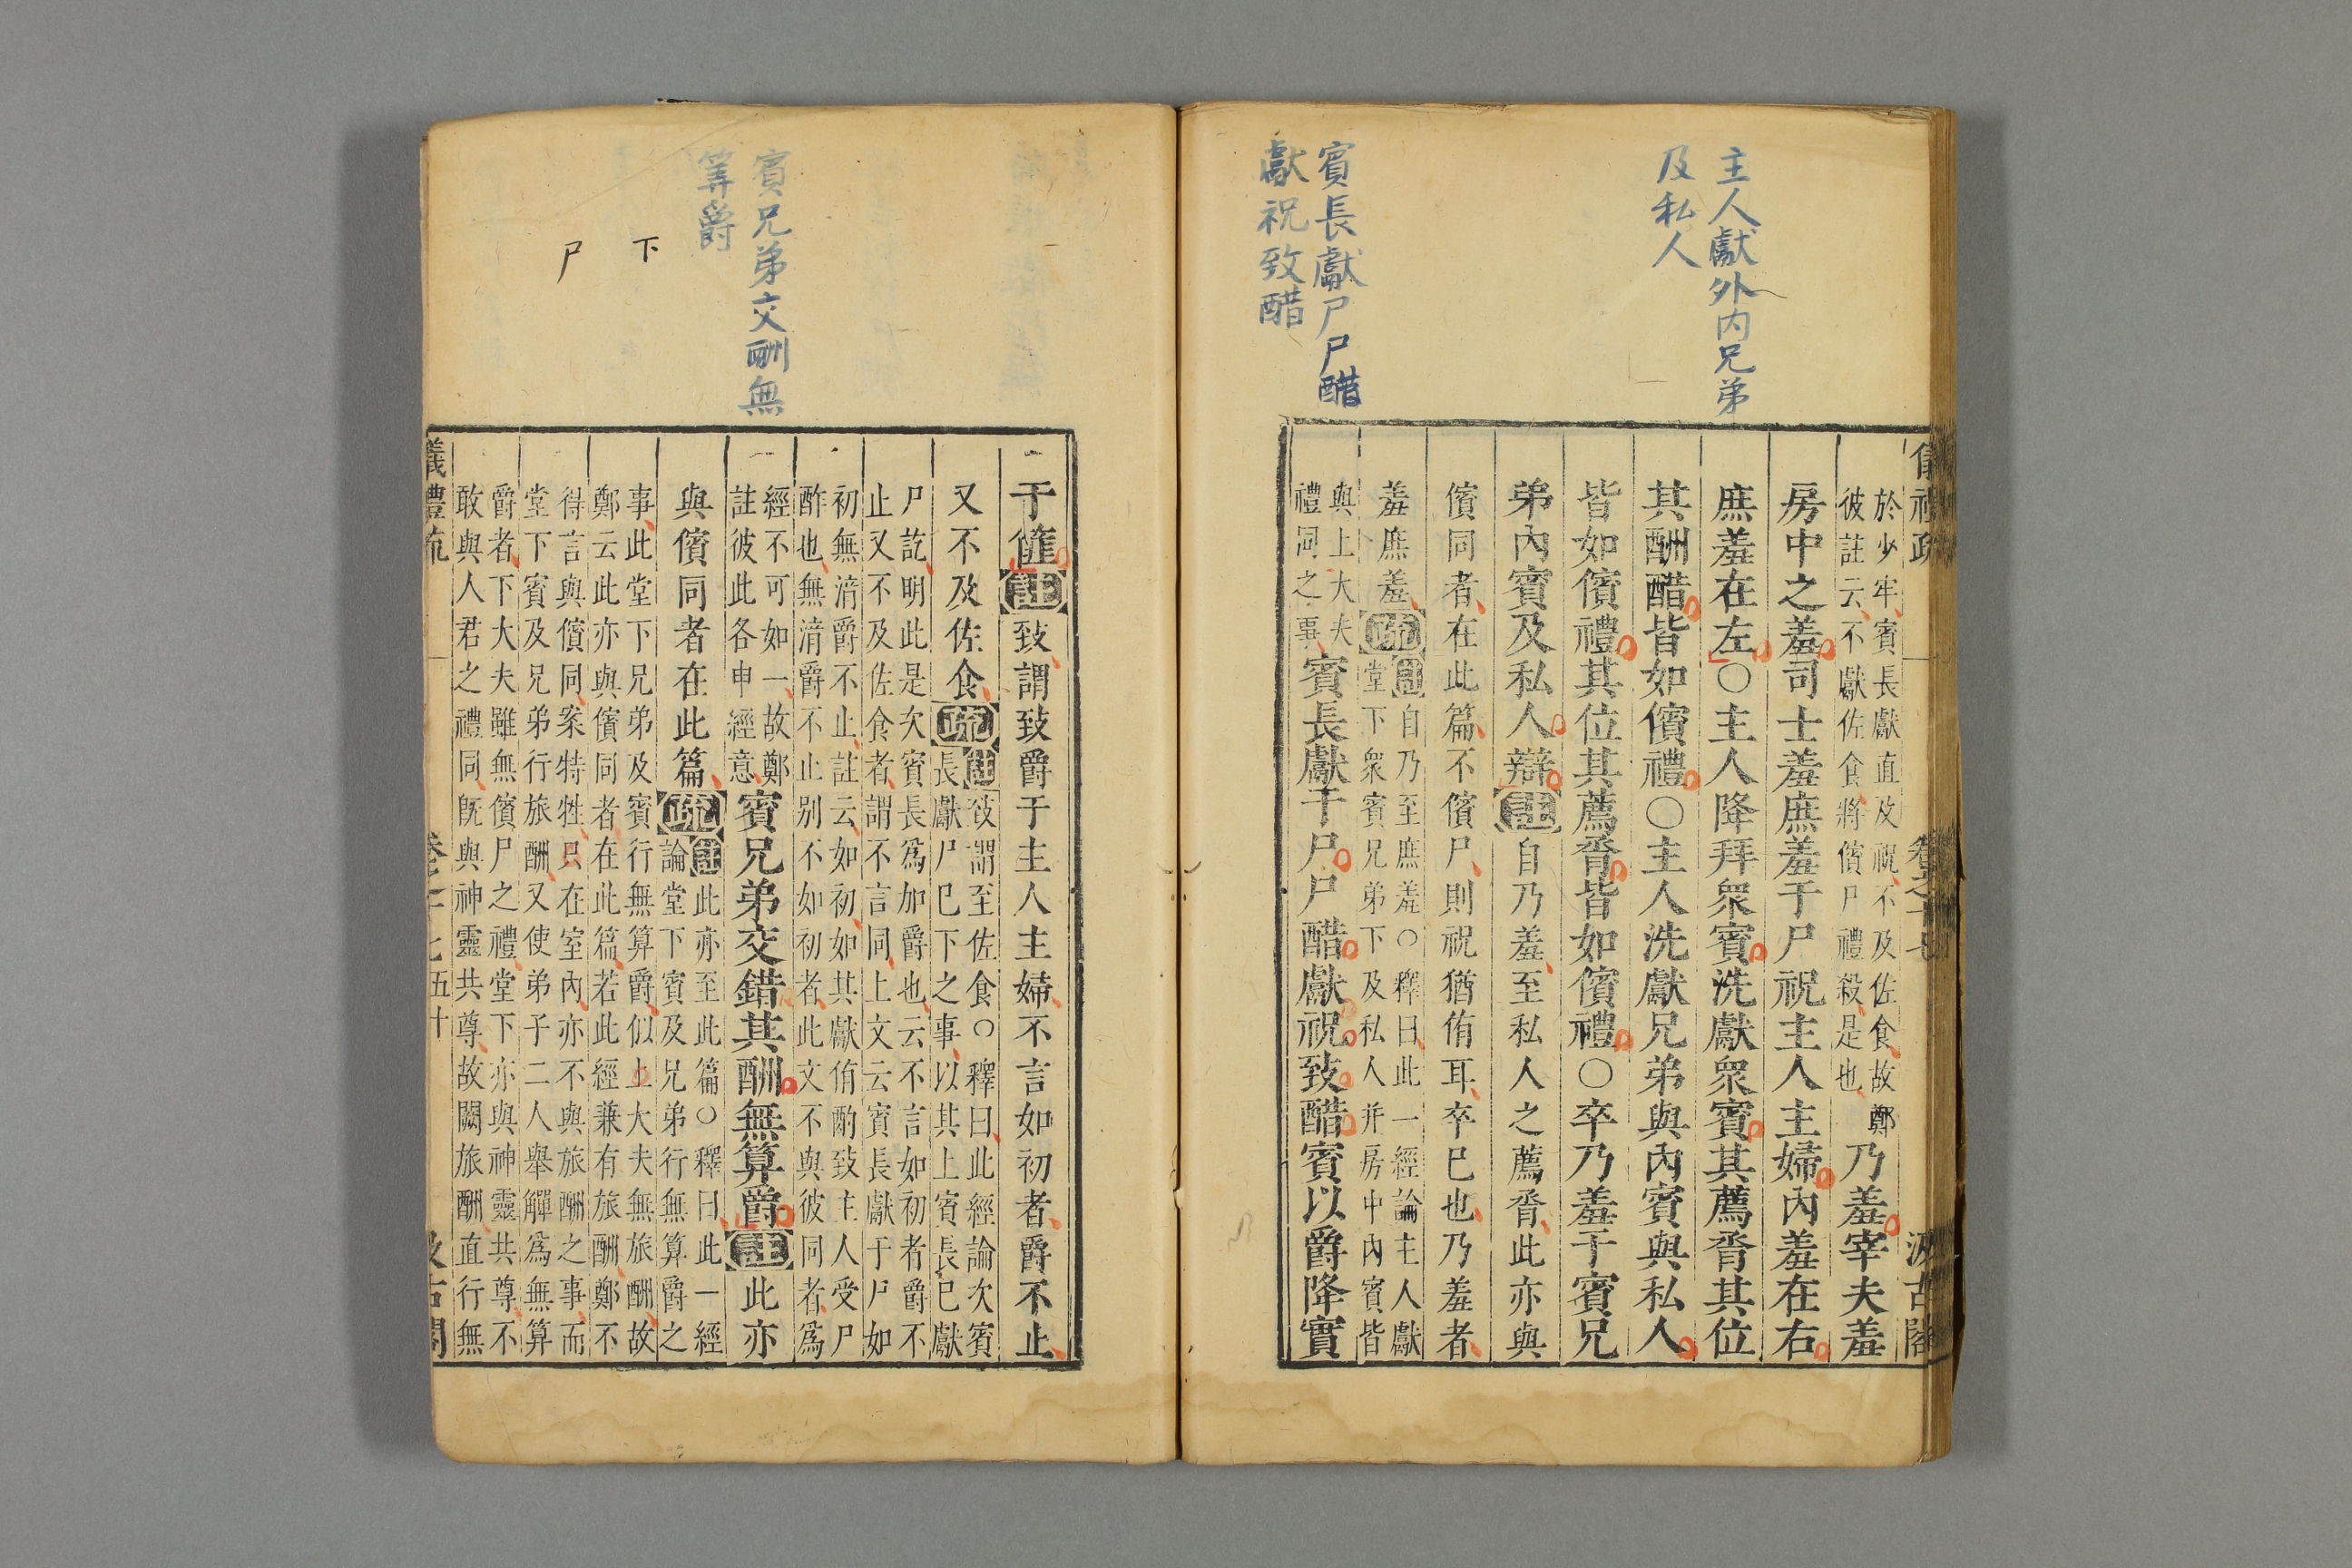 主人獻外內兄弟
及私人
賓長獻尸尸醋
獻祝致醋
於少牢賓長獻直及祝不及佐食故鄭
彼註云不獻佐食將儐尸禮殺是也
乃羞宰夫羞
房中之羞司士羞庶羞于尸祝主人主婦內羞在右
庶羞在左○主人降拜衆賓洗獻衆賓其薦脀其位
其酬醋皆如儐禮○主人洗獻兄弟與內賓與私人
皆如儐禮其位其薦脀皆如儐禮○卒乃羞于賓兄
弟內賓及私人辯註自乃羞至私人之薦脀此亦與
儐同者在此篇不儐尸則祝猶侑耳卒已也乃羞者
羞庶羞疏
註自乃至庶羞○釋曰此一經論主人獻
堂下衆賓兄弟下及私人并房中內賓皆
與上大夫
禮同之事
賓長獻于尸尸醋獻祝致醋賓以爵降實
賓兄弟交酬無
筭爵
下
尸
于篚註致謂致爵于主人主婦不言如初者爵不止
又不及佐食疏
註致謂至佐食○釋曰此經論次賓
長獻尸已下之事以其上賓長已獻
尸訖明此是次賓長爲加爵也云不言如初者爵不
止又不及佐食者謂不言同上文云賓長獻于尸如
初無湇爵不止註云如初如其獻侑酌致主人受尸
酢也無湇爵不止別不如初者此文不與彼同者爲
經不可如一故鄭
註彼此各申經意
賓兄弟交錯其酬無算爵註此亦
與儐同者在此篇疏
註此亦至此篇○釋曰此一經
論堂下賓及兄弟行無算爵之
事此堂下兄弟及賓行無算爵似上大夫無旅酬故
鄭云此亦與儐同者在此篇若此經兼有旅酬鄭不
得言與儐同案特牲只在室內亦不與旅酬之事而
堂下賓及兄弟行旅酬又使弟子二人舉觶爲無算
爵者下大夫雖無儐尸之禮堂下亦與神靈共尊不
敢與人君之禮同旣與神靈共尊故闕旅酬直行無